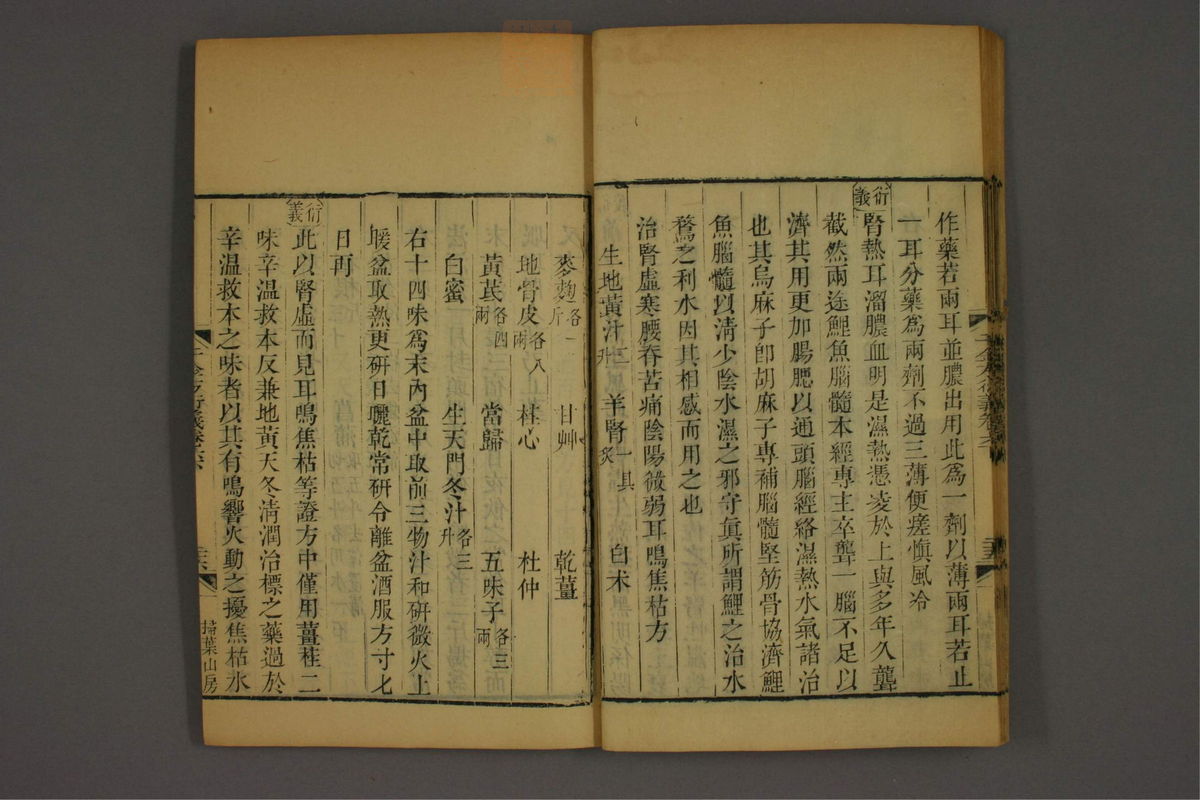 作藥若兩耳並膿出用此爲一劑以薄兩耳若止
一耳分藥爲兩劑不過三薄便瘥愼風冷
衍義
腎熱耳溜膿血明是濕熱憑凌於上與多年久聾
截然兩途鯉魚腦髓本經專主卒聾一腦不足以
濟其用更加腸腮以通頭腦經絡濕熱水氣諸治
也其烏麻子卽胡麻子專補腦髓堅筋骨協濟鯉
魚腦髓以清少陰水濕之邪守眞所謂鯉之治水
鶩之利水因其相感而用之也
治腎虛寒腰脊苦痛陰陽微弱耳鳴焦枯方
生地黃汁二升 羊腎一具炙 白朮
麥麴各一斤 甘艸 乾薑
地骨皮各八兩 桂心 杜仲
黃芪各四兩 當歸 五味子各三兩
白蜜 生天門冬汁各三升
右十四味爲末內盆中取前三物汁和研微火上
暖盆取熱更研日曬乾常研令離盆酒服方寸七
日再
衍義
此以腎虛而見耳鳴焦枯等證方中僅用薑桂二
味辛溫救本反兼地黃天冬清潤治標之藥過於
辛溫救本之味者以其有鳴響火動之擾焦枯水
千金方衍義卷六
掃葉山房